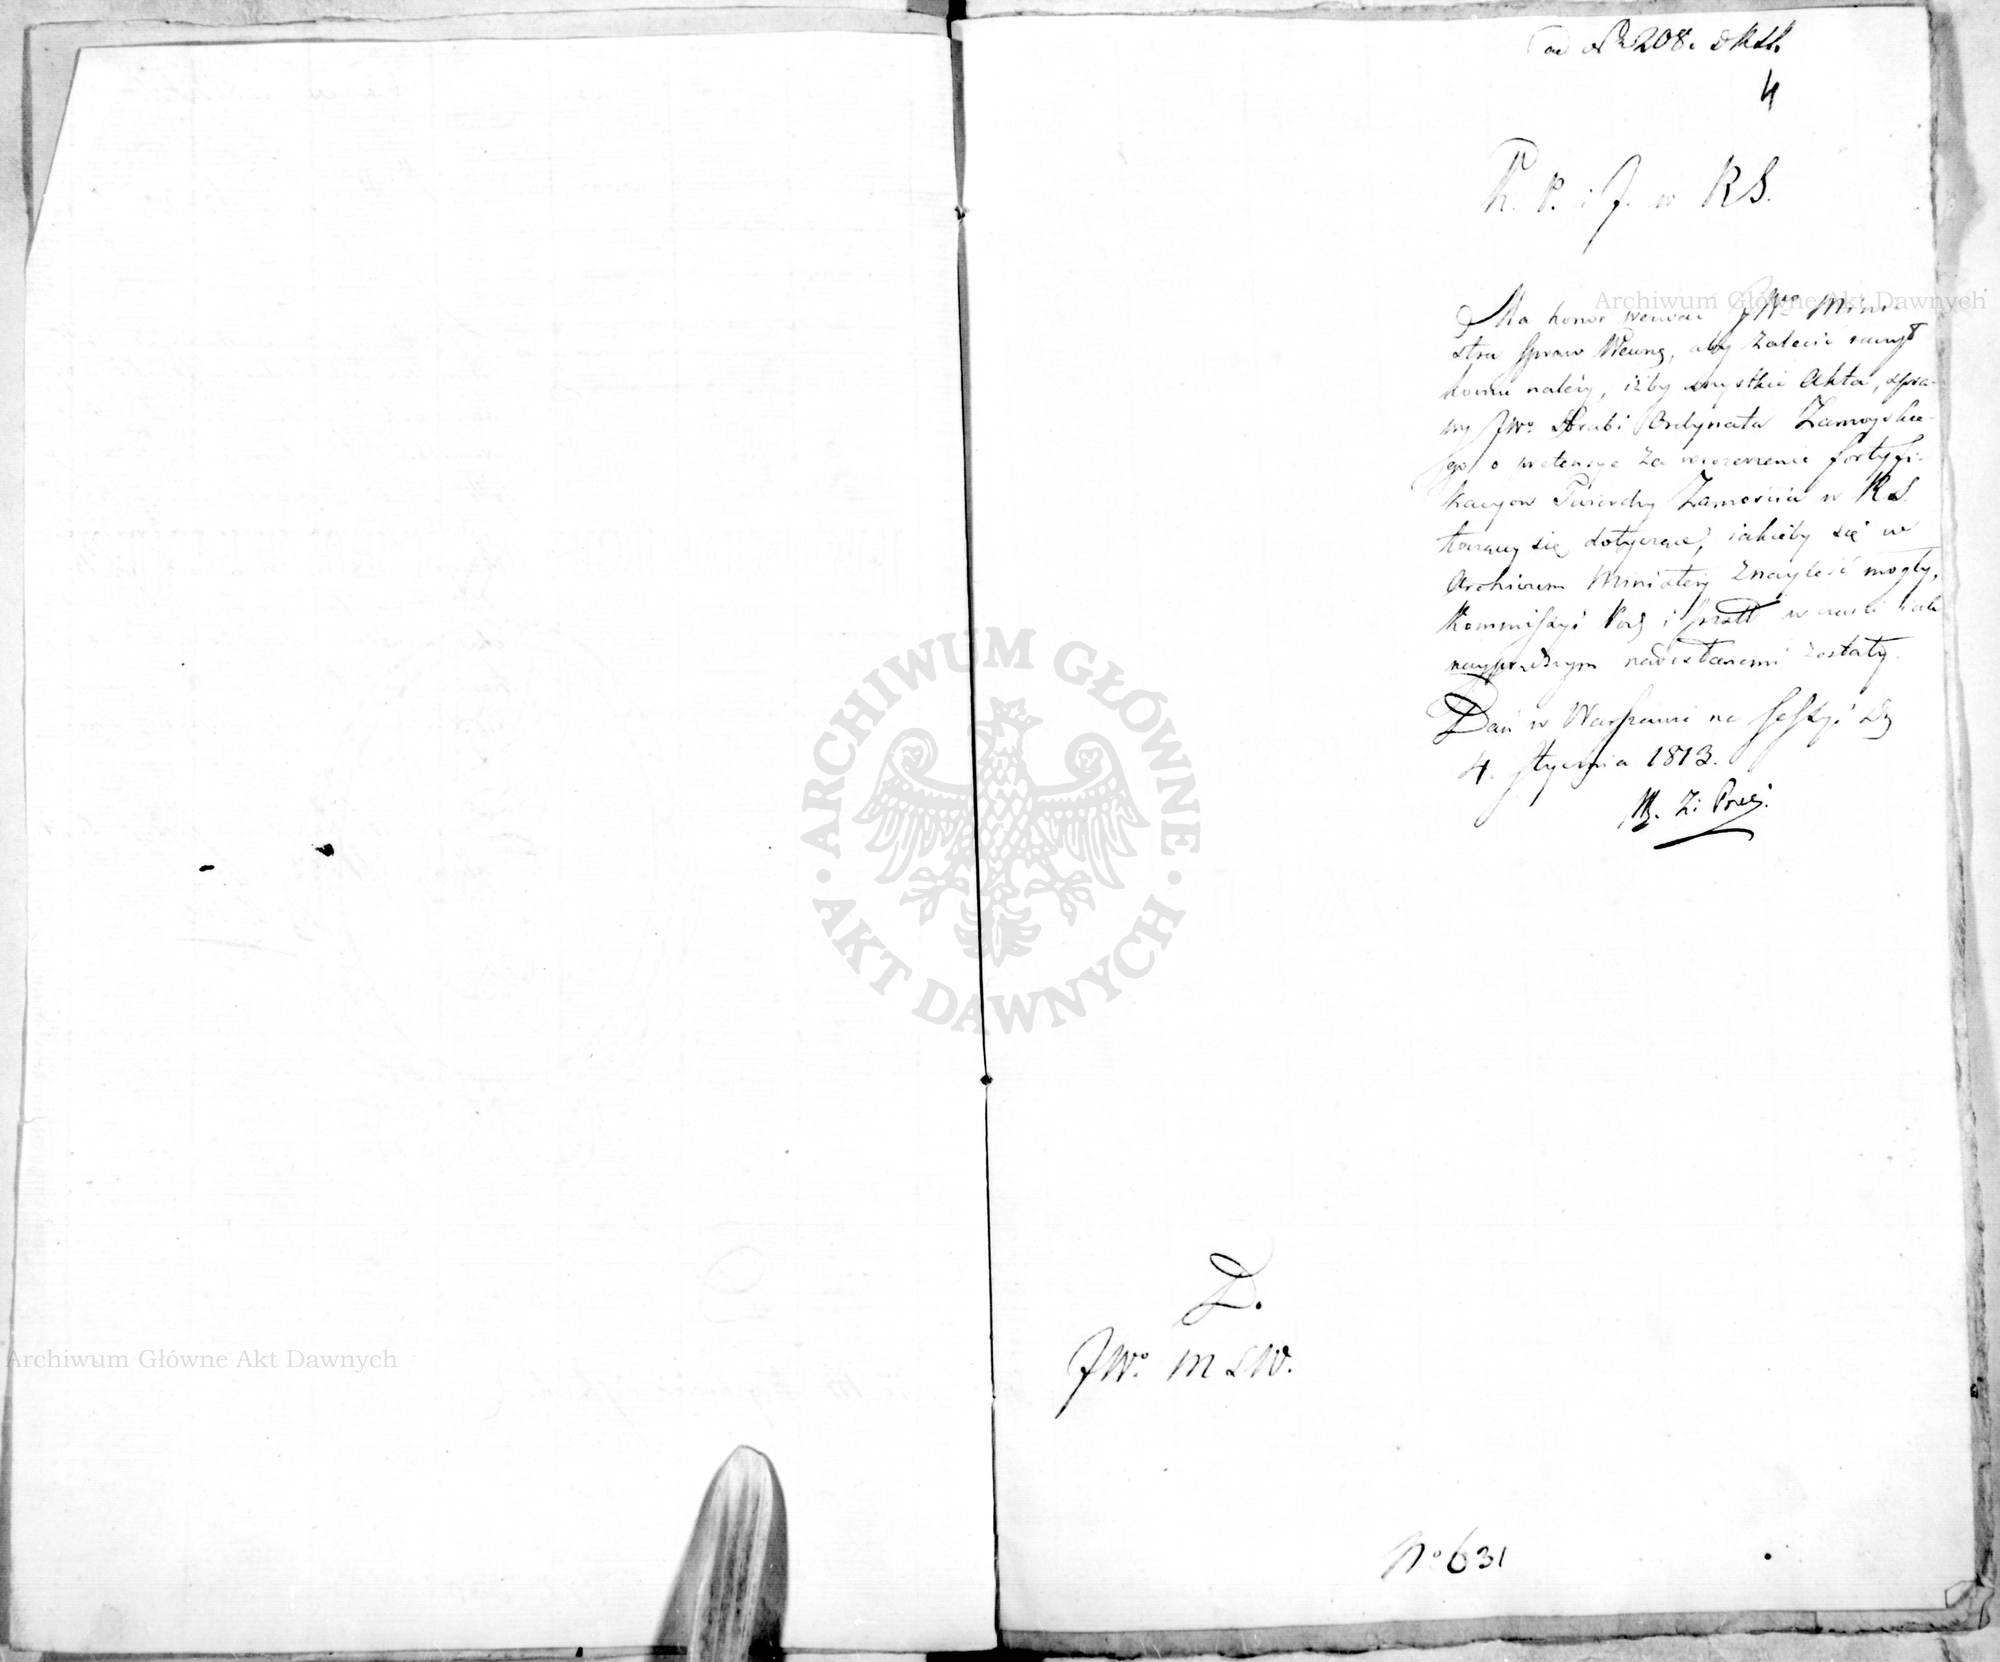 ad No 208. DKSt.
4
K. P. i J. w RS.
Ma honor wezwać JWo Mini-
stra Spraw Wewnę, aby zalecić raczył
komu należy, iżby wszystkie Akta, spra-
wy JWo Hrabi Ordynata Zamoyskie-
go o pretensye za wzniesienie fortyfi-
kacyow Twierdzy Zamościa w RS.
toczącey się dotyczące, iakieby się w
Archiwum Ministery znayleść mogły,
Kommissyi Pody i w czasie iak
nayprędszym nadesłanemi zostały.
Dań w Warszawie na Sessyi Dy
4. Stycznia 1813.
M. Z: Prez.
D.
JWo MSW.
No 631
Archiwum Główne Akt Dawnych
ARCHIWUM GŁÓWNE
AKT DAWNYCH
Archiwum Główne Akt Dawnych